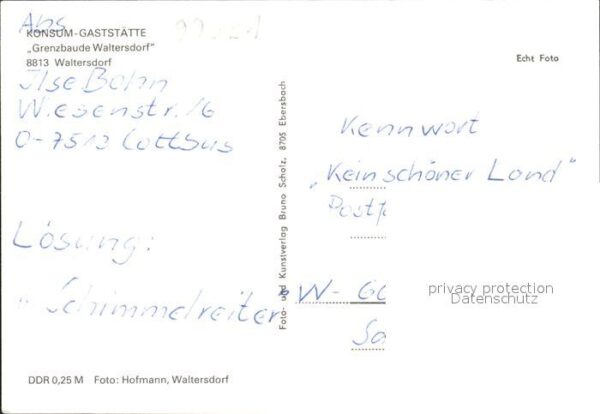 Abs.
KONSUM-GASTSTÄTTE
„Grenzbaude Waltersdorf"
8813 Waltersdorf
Ilse Bohn
Wiesenstr. 16
O-7512 Cottbus
Lösung:
„Schimmelreiter"
DDR 0,25 M Foto: Hofmann, Waltersdorf
Foto- und Kunstverlag Bruno Scholz, 8705 Ebersbach
Echt Foto
Kennwort
„Kein schöner Land"
Postf
W-
Sa
privacy protection
Datenschutz